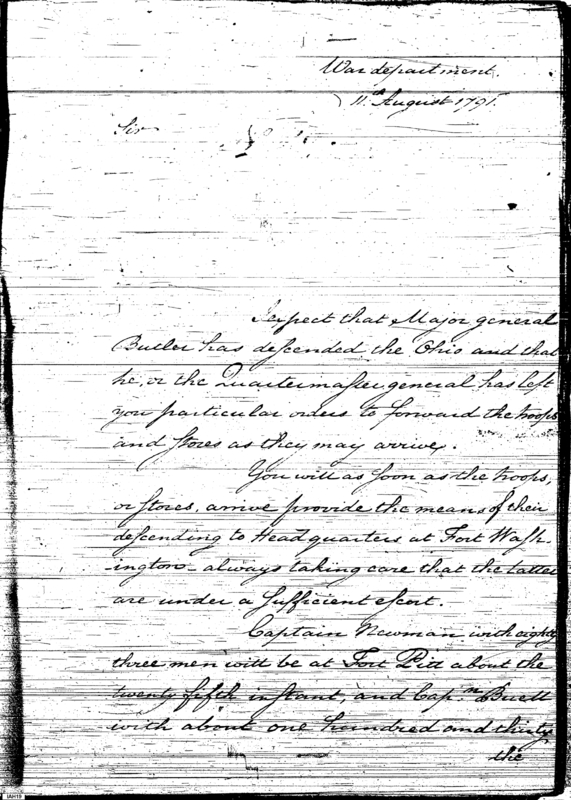 War department.
11th August 1791.
Sir
I expect that Major general
Butler has descended the Ohio and that
he, or the Quartermaster general has left
you particular orders to forward the troops
and stores as they may arrive.
You will as soon as the troops,
or stores, arrive provide the means of their
descending to Head quarters at Fort Wash-
-ington - always taking care that the latter
are under a sufficient escort.
Captain Newman with eighty
three men will be at Fort Pitt about the
twenty fifth instant, and Capn Buell
with about one hundred and thirty
the
IAH19